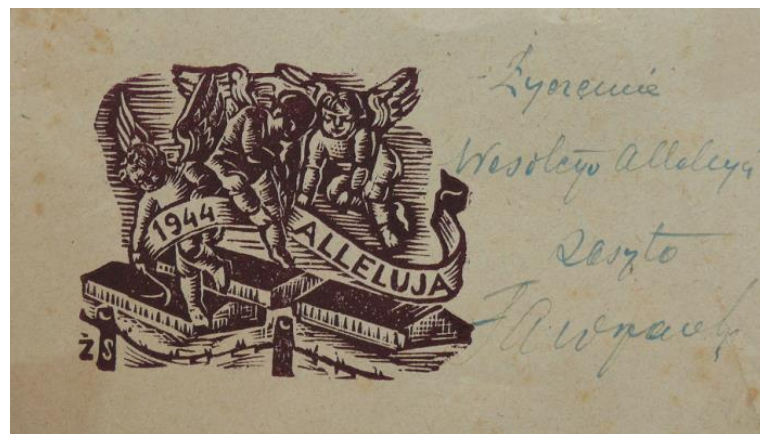 1944
ALLELUJA
ŻS
Życzenia
Wesołego Alleluja